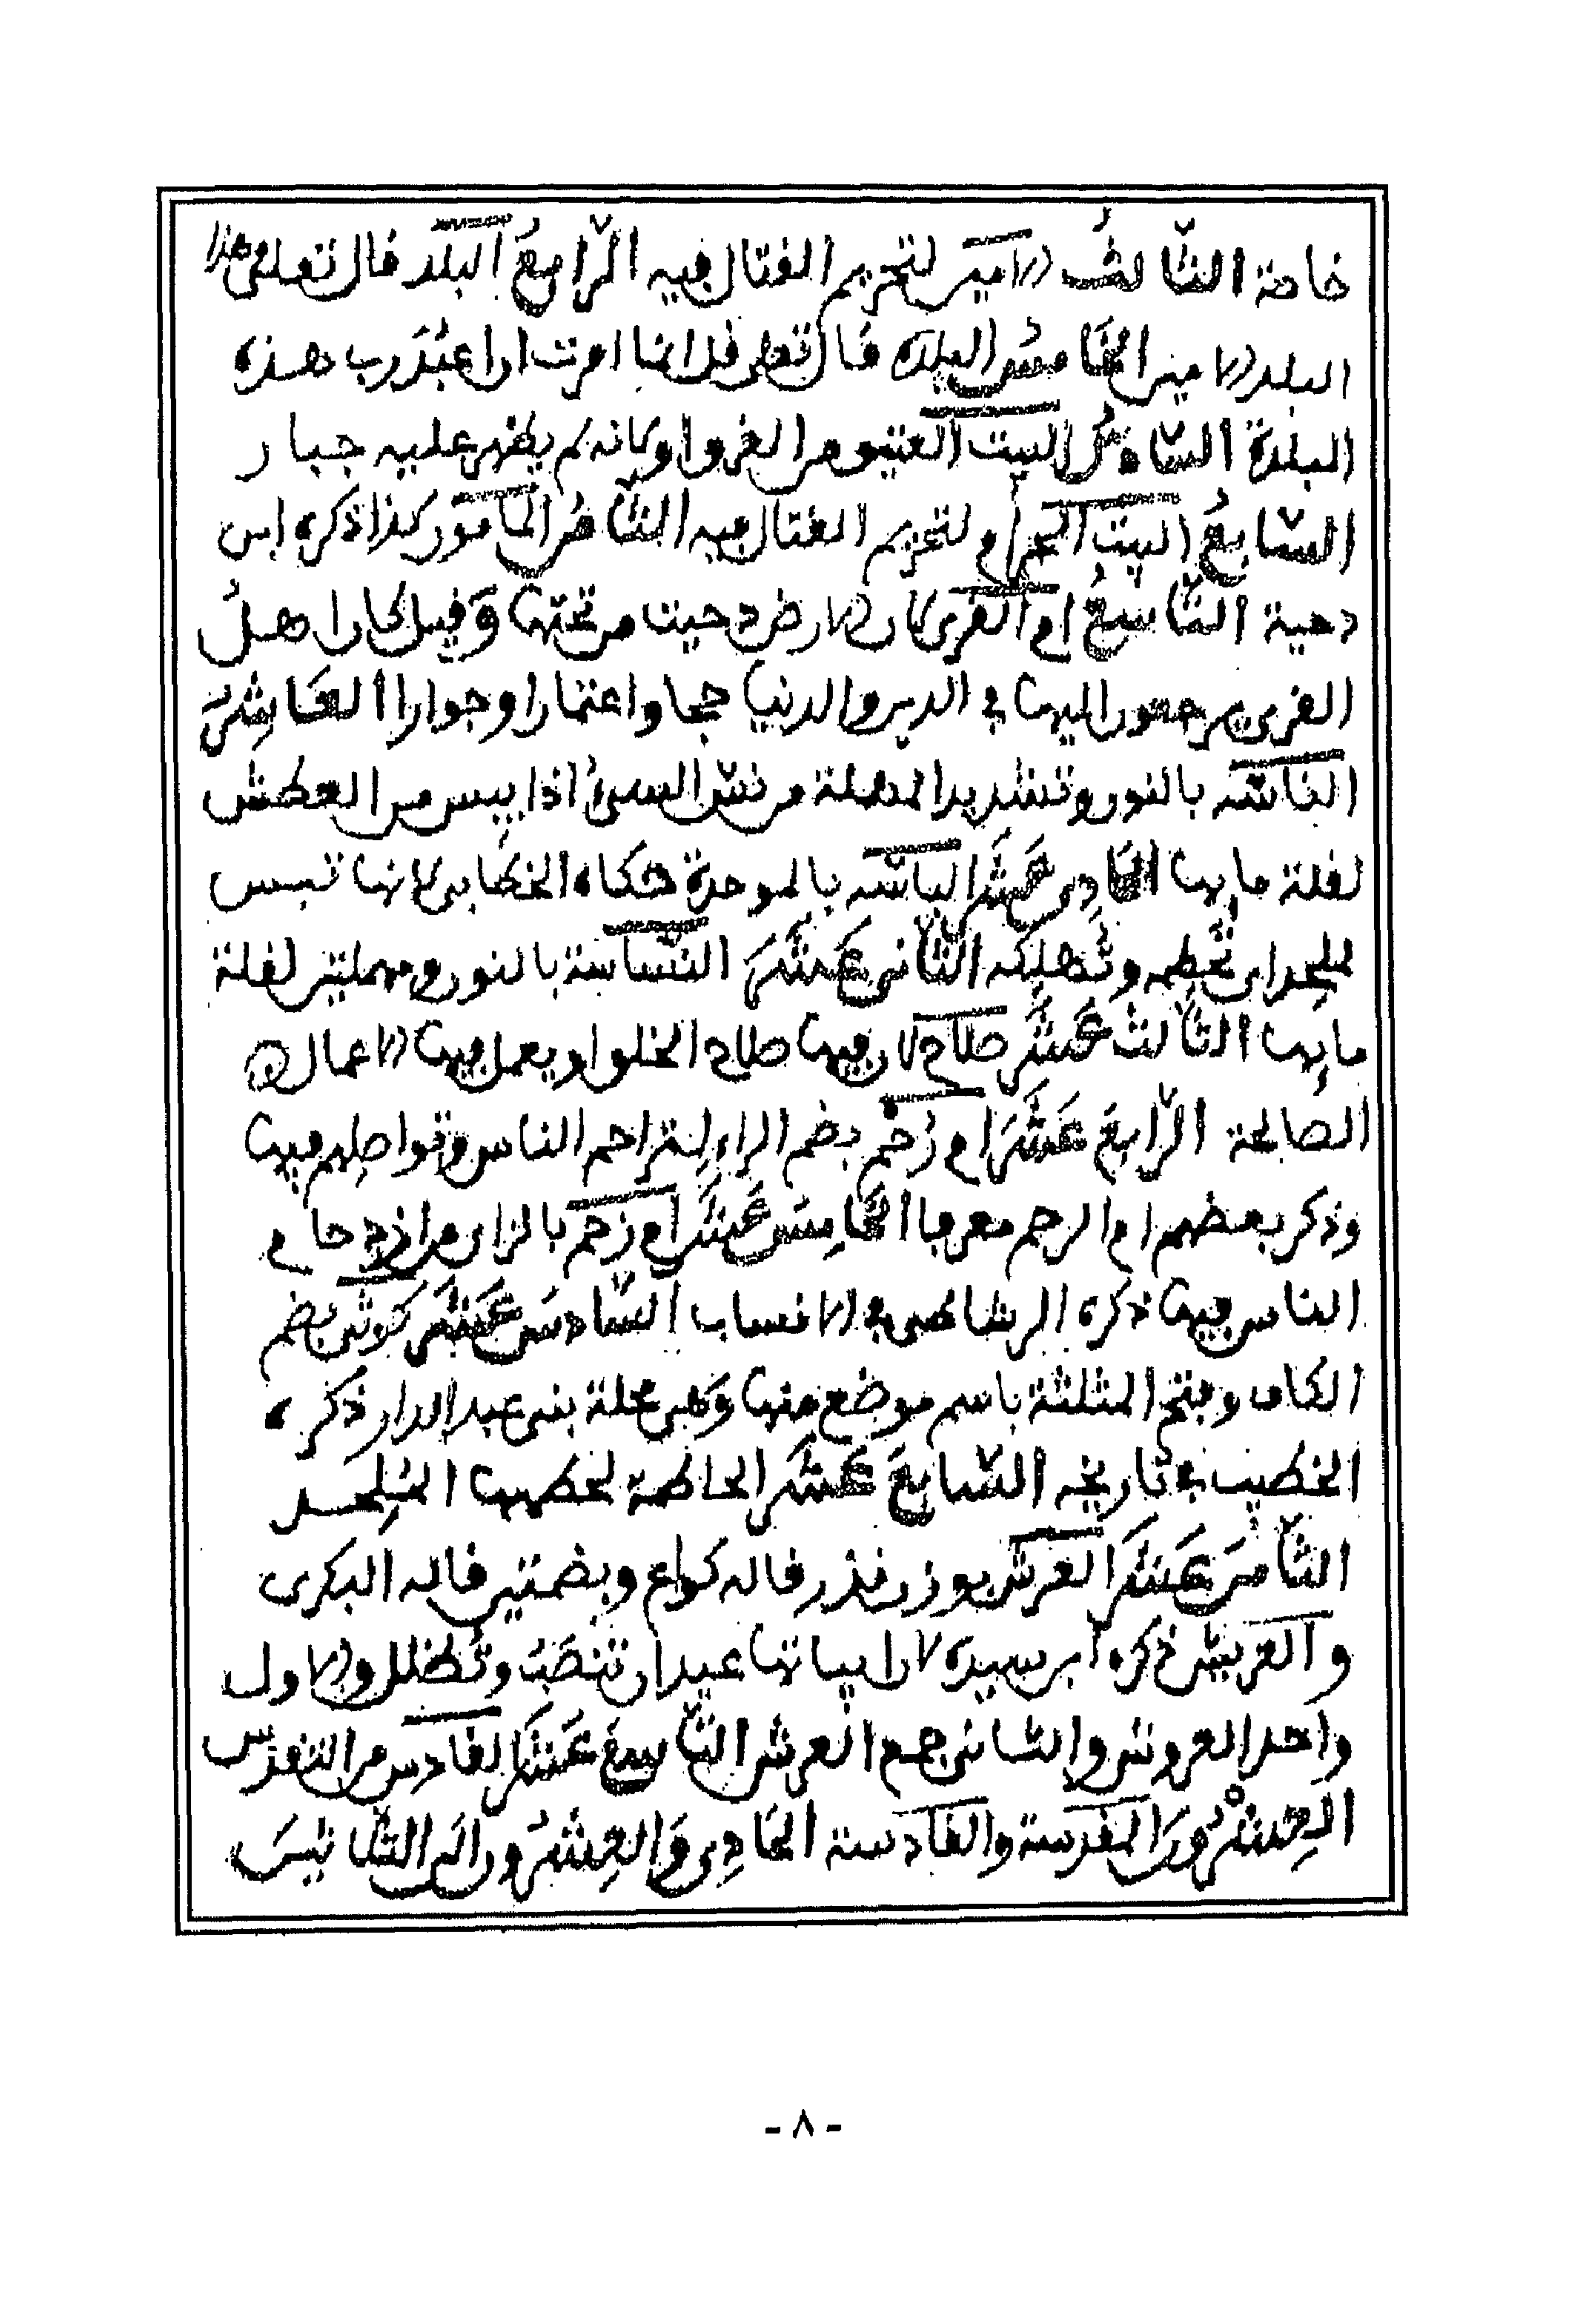 خاصة الثالثُ الامين لتحريم القتال فيه الرابعُ البلد قال تعلى وهذا
البلد الامين الخامسُ البلدة قال تعلى قل انما امرت ان اعبُدَ رب هذه
البلدة السادسُ البيت العتيق من الغرق او لانه لم يظهر عليه جبار
السابعُ البيت الحرام لتحريم القتال فيه الثامنُ المامون كذا ذكره ابن
دحية التاسعُ ام القرى لان الارض دحيت من تحتها وَقيل لان اهلُ
القرى يرجعون اليها في الدين والدنيا حجا واعتمارا وجوارا العَاشِرُ
الناسّه بالنون وتشديد المهملة من نسّ الشيءُ اذا يبِس من العطش
لقلة مايها الحَادِي عَشَر الباسّه بالموحدة حكاه الخطابي لانها تبس
الملحد اي تَحْطِمه وتُهلِكه الثاني عَشَرَ النسّاسة بالنون ومهملتين لقلة
مايِها الثالث عَشَرَ صلاح لان فيها صلاح الخلق او يعمل فيها الاعمال
الصالحة الرّابعَ عَشَرَ ام رُحْم بضم الراء لتراحم الناس وتواصِلهم فيها
وذكر بعضهم ام الرحم معرفا الخَامِسَ عَشَرَ ام زحم بالزاي من ازدحام
الناس فيها ذكره الرشاطي في الانساب السَّادسَ عَشَرَ كُوثَى بضم
الكاف وبفتح المثلثة باسم موضع منها وَهي محلة بني عبد الدار ذكره
الخطيب في تاريخه السّابعَ عَشَرَ الحاطمة لحطمها المُلْحد
الثامنَ عَشَرَ العَرْش بوزن نذر قاله كراع وبضمتين قاله البكرى
والعريش ذكره ابن سيده لان ابياتها عيدان تنصَبُ وتُظلل والاول
واحد العروش والثاني جمع العرش التاسعَ عَشَرَ القادس من التقدّس
العِشْرُونَ المقدسة والقادسة الحَادِي وَالعِشْرُونَ الى الثلاثينَ
- ٨ -